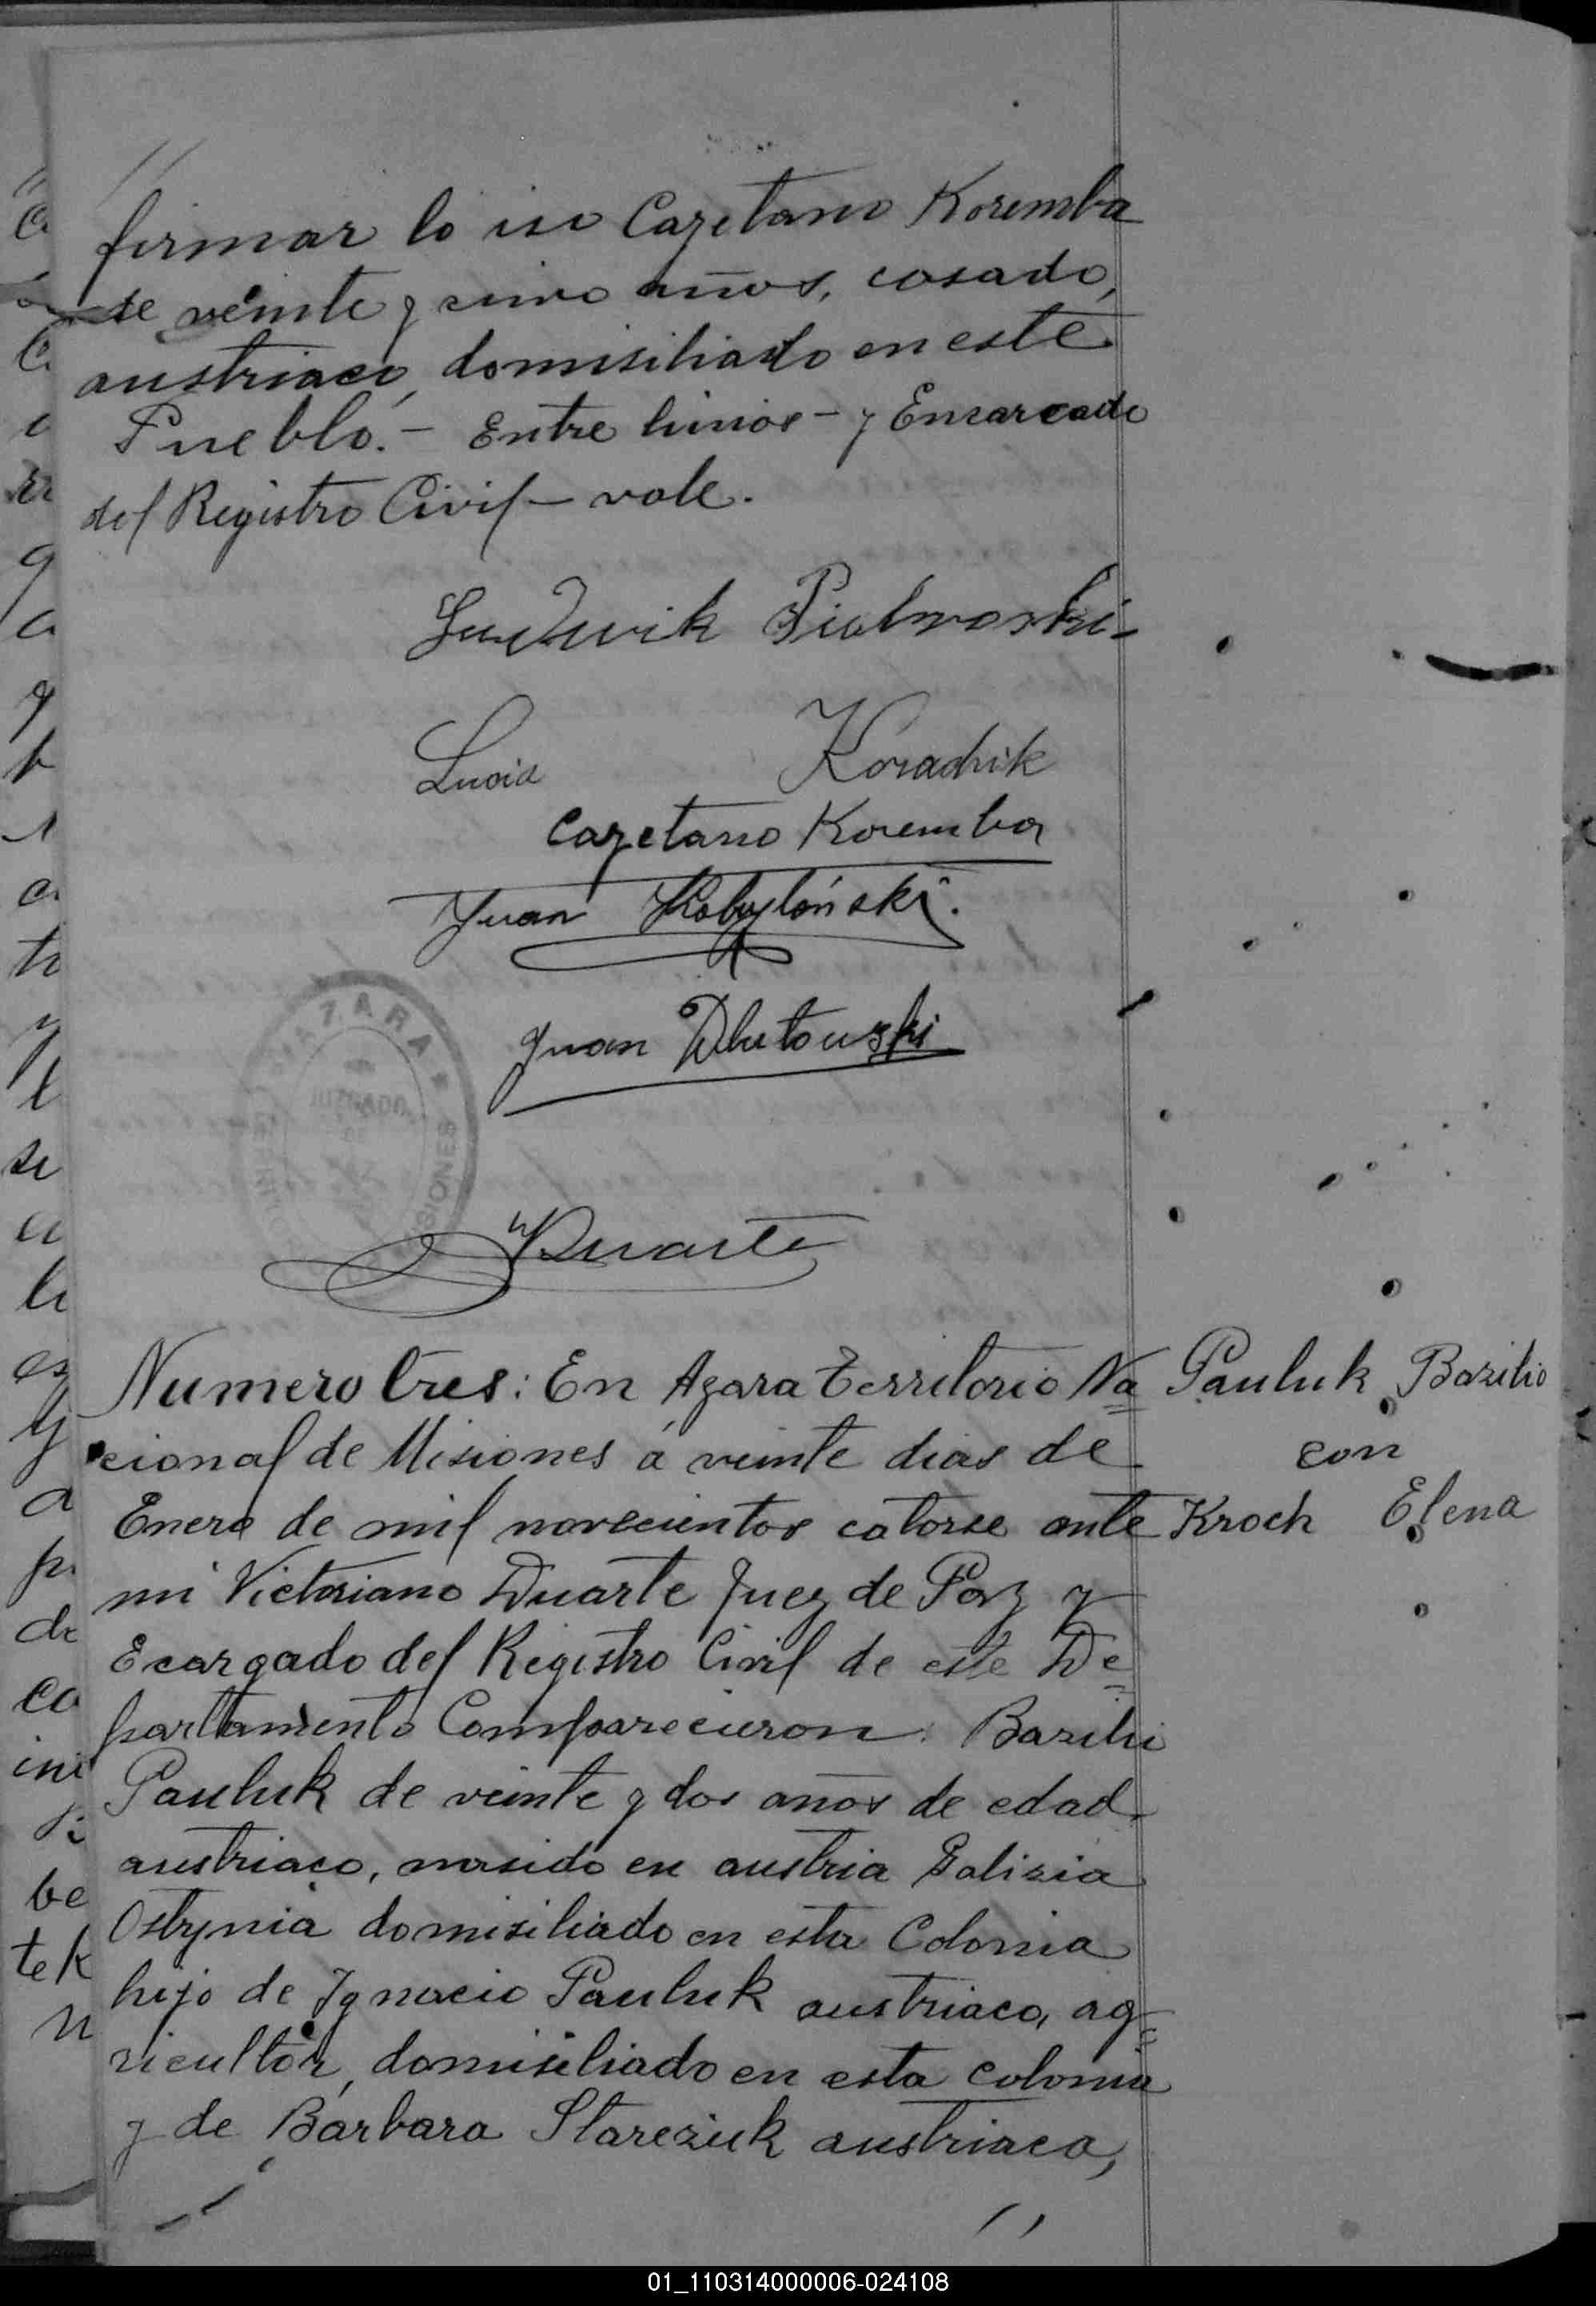 firmar lo iso Cayetano Koremba
de veinte y cinco años, casado,
austriaco, domisiliado en este
Pueblo. - Entre linias - y Encarcado
del Registro Civil - vale.
Ludwik
Lucia Koradnik
Cayetano Koremba
Juan Kobyloński.
Juan Dlutouski
AZARA
JUZGADO
DE
MISIONES
VDuarte
Numero tres: En Azara Territorio Na
cional de Misiones á veinte dias de
Enero de mil novecientos catorse ante
mi Victoriano Duarte Juez de Paz y
Ecargado del Registro Civil de este De
partamento Comparecieron: Bazilio
Pauluk de veinte y dos años de edad
austriaco, nasido en austria Galisia
Ostynia domisiliado en esta Colonia
hijo de Ygnacio Pauluk austriaco, ag
ricultor, domisiliado en esta colonia
y de Bárbara Starcziuk austriaca,
Pauluk Bazilio
con
Kroch Elena
01_110314000006-024108